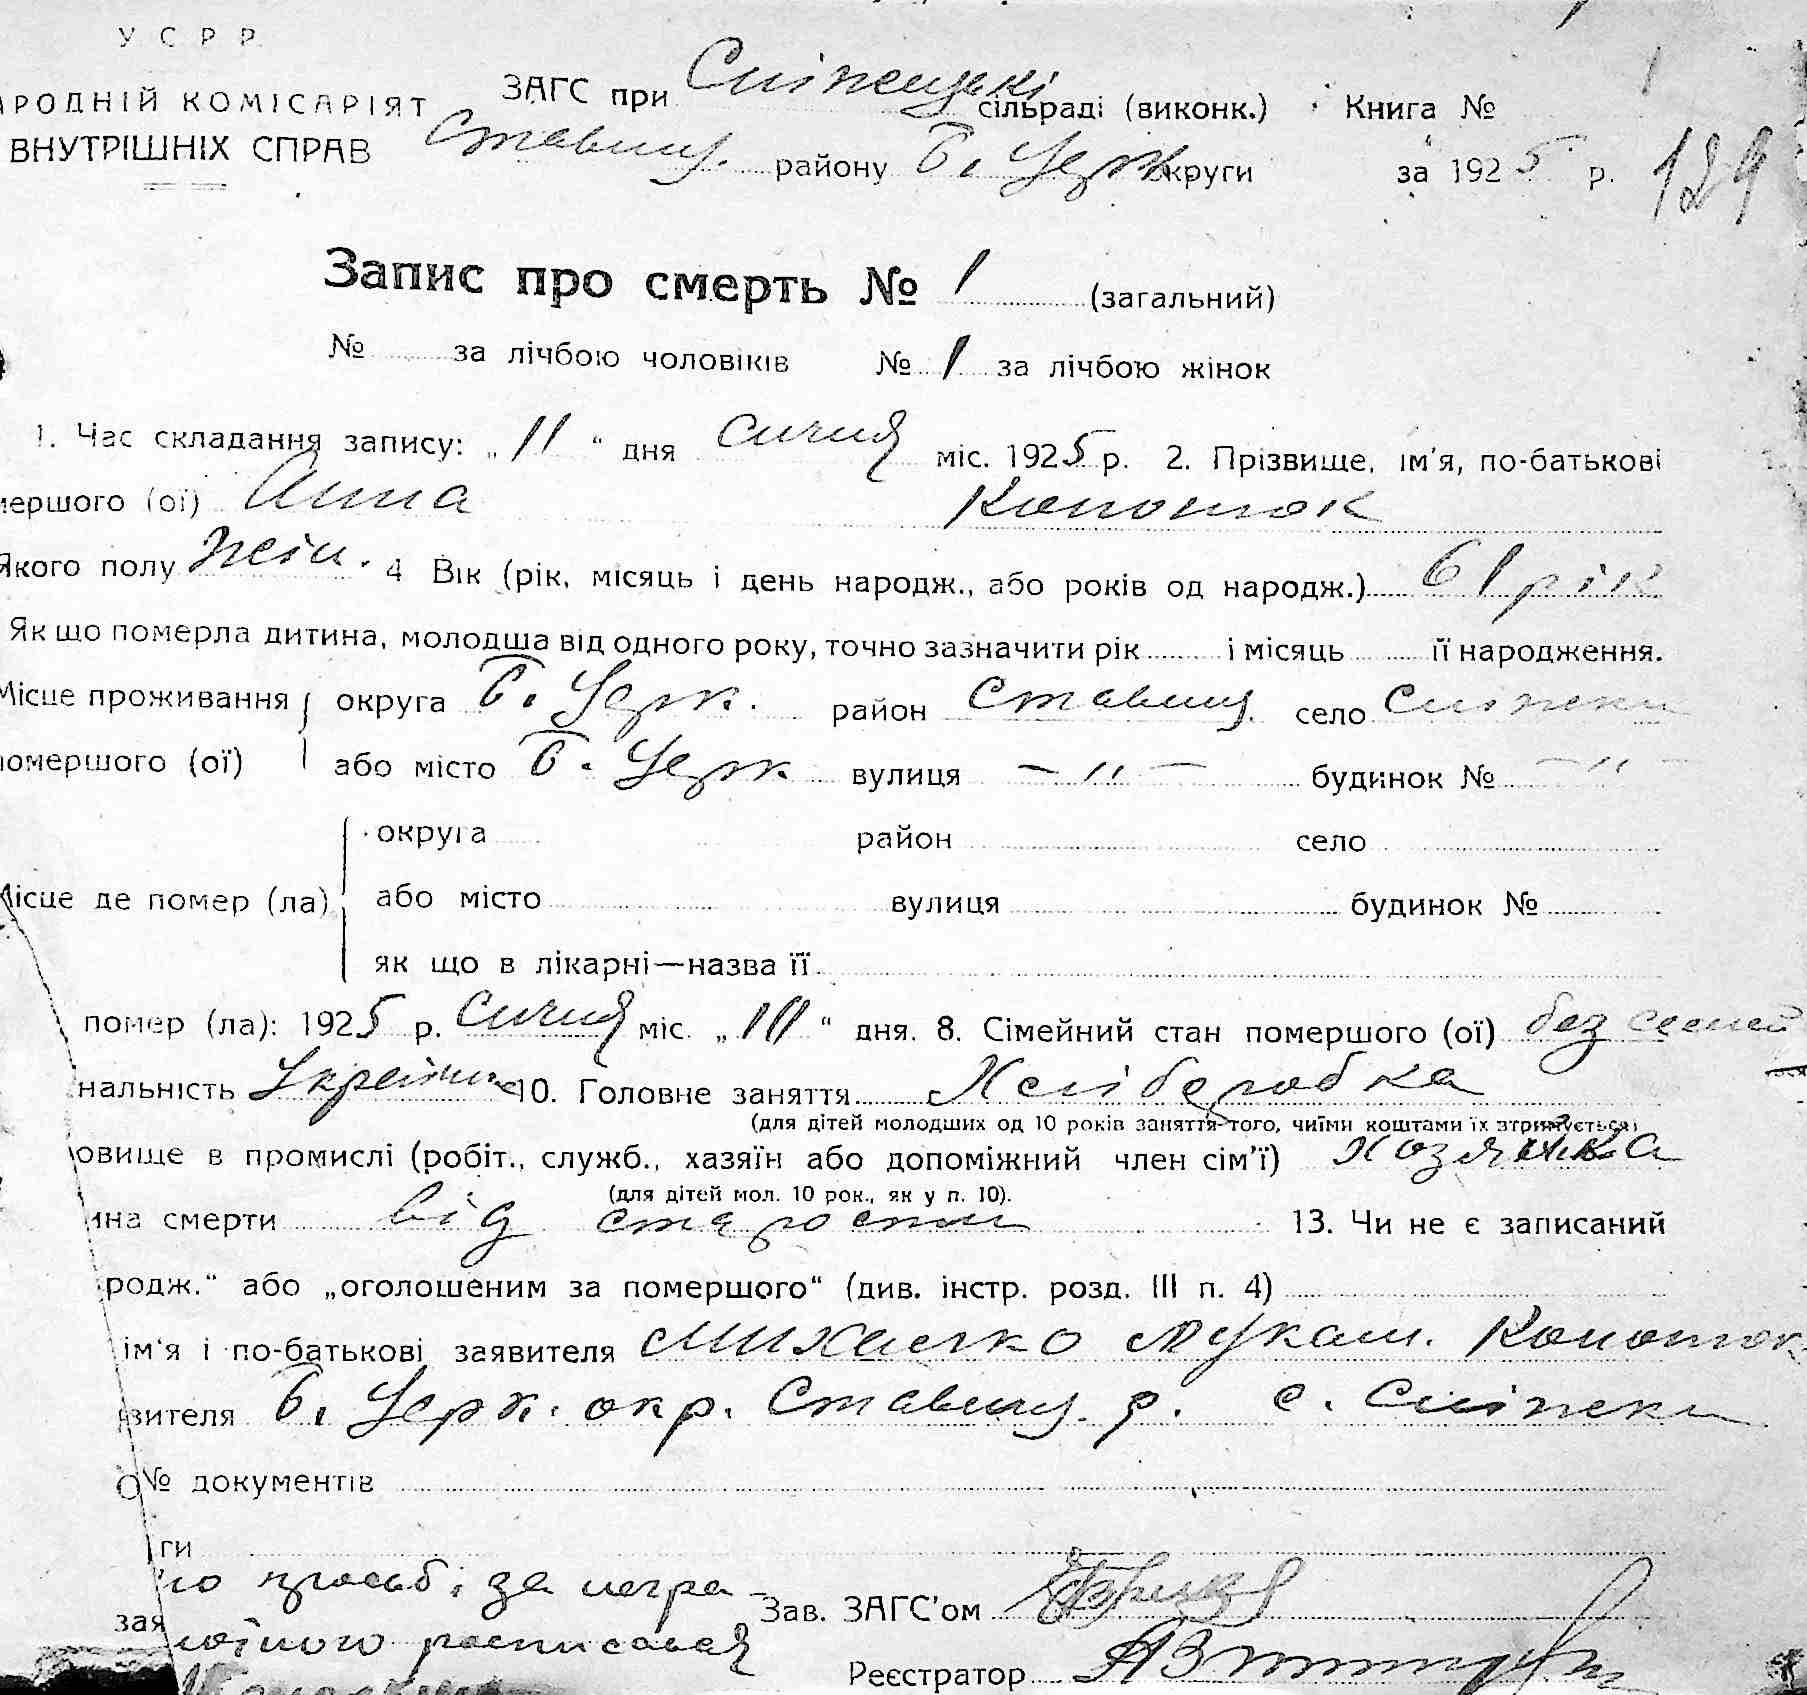 У С Р Р
АРОДНІЙ КОМІСАРІЯТ
ВНУТРІШНІХ СПРАВ
ЗАГС при Сніжецькі сільраді (виконк.) Книга №
Ставищ. району Б. Церк округи за 1925 р. 129
Запис про смерть № 1 (загальний)
№ за лічбою чоловіків № 1 за лічбою жінок
1. Час складання запису: „11“ дня Січня міс. 1925 р. 2. Прізвище, ім'я, по-батькові
мершого (ої) Анна Копотюк
Якого полу жін. 4 Вік (рік, місяць і день народж., або років од народж.) 61 рік
Як що померла дитина, молодша від одного року, точно зазначити рік і місяць її народження.
Місце проживання округа Б. Церк. район Ставищ. село Сніжки
помершого (ої) або місто Б. Церк вулиця — „ — будинок № — „ —
округа район село
Місце де помер (ла) або місто вулиця будинок №
як що в лікарні—назва її
помер (ла): 1925 р. Січня міс. „10“ дня. 8. Сімейний стан помершого (ої) без семей
нальність Україн 10. Головне заняття Хліборобка
(для дітей молодших од 10 років заняття того, чиїми коштами їх втримується)
овище в промислі (робіт., служб., хазяїн або допоміжний член сім'ї) Хозяйка
(для дітей мол. 10 рок., як у п. 10).
ина смерти від старости 13. Чи не є записаний
родж.“ або „оголошеним за помершого“ (див. інстр. розд. III п. 4)
ім'я і по-батькові заявителя Михалко Лукаш. Копотюк
явителя Б. Церк. окр. Ставищ. р. с. Сніжки
№ документів
ги
по прозьбі за негра-
зая мотного росписався
Зав. ЗАГС'ом
Реєстратор